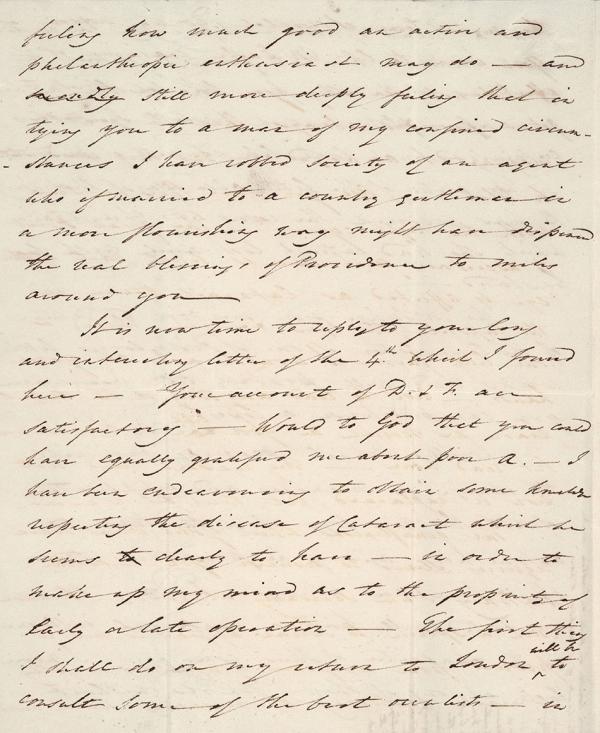 feeling how much good an active and
philanthropic enthusiast may do — and
still more deeply feeling that in
tying you to a man of my confined circum-
-stances I have robbed society of an agent
who if married to a country gentleman in
a more flourishing way might have dispensed
the real blessings of Providence to miles
around you —
It is now time to reply to your long
and interesting letter of the 4.th which I found
here — Your account of D. & F. are
satisfactory — Would to God that you could
have equally gratified me about poor A. — I
have been endeavouring to obtain some knowledge
respecting the disease of Cataract which he
seems to clearly to have — in order to
make up my mind as to the propriety of
Early or late operation — The first thing
I shall do on my return to London will be to
consult some of the best oculists — in